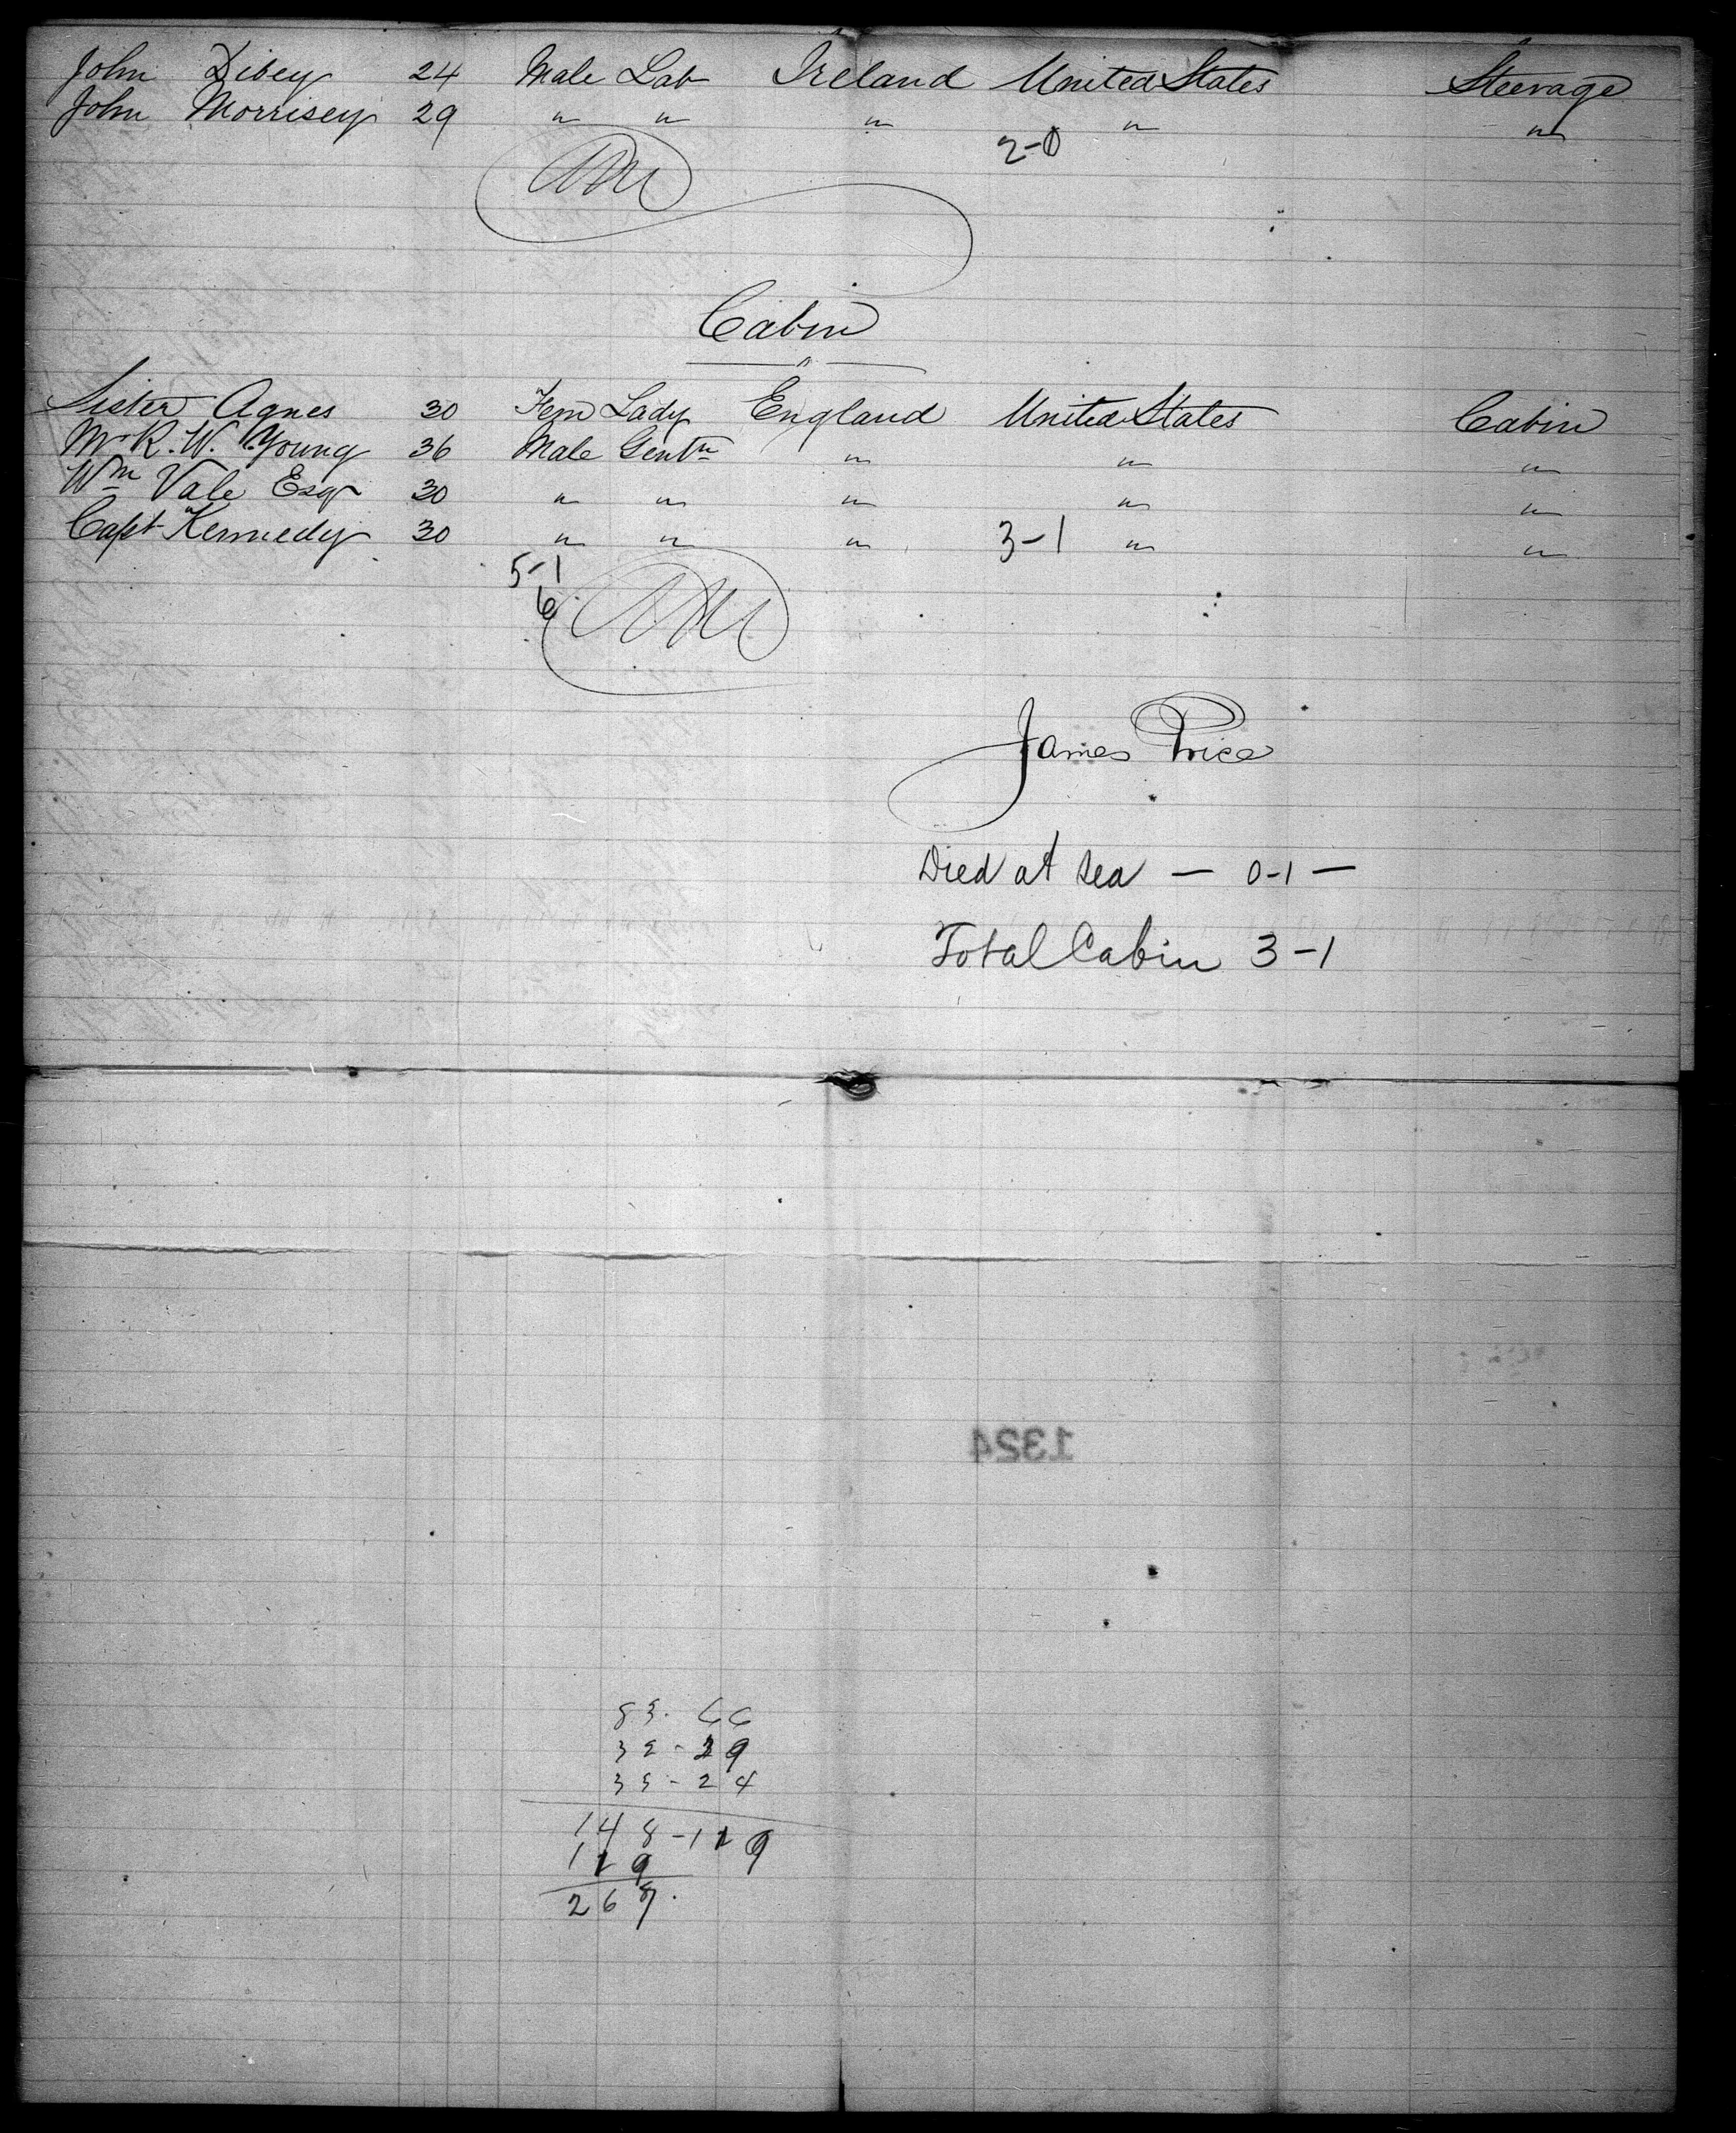 John Dibey 24 Male Lab Ireland United States Steerage
John Morrisey 29 " " " " "
2-0
Cabin
"
Sister Agnes 30 Fem Lady England United States Cabin
Mr R. W. Young 36 Male Gentn " " "
Wm Vale Esqr 30 " " " " "
Capt Kennedy 30 " " " 3-1 " "
5-1
6
James Price
Died at sea — 0-1 —
Total Cabin 3-1
1324
83. 66
32-29
35-24
148-119
119
268.